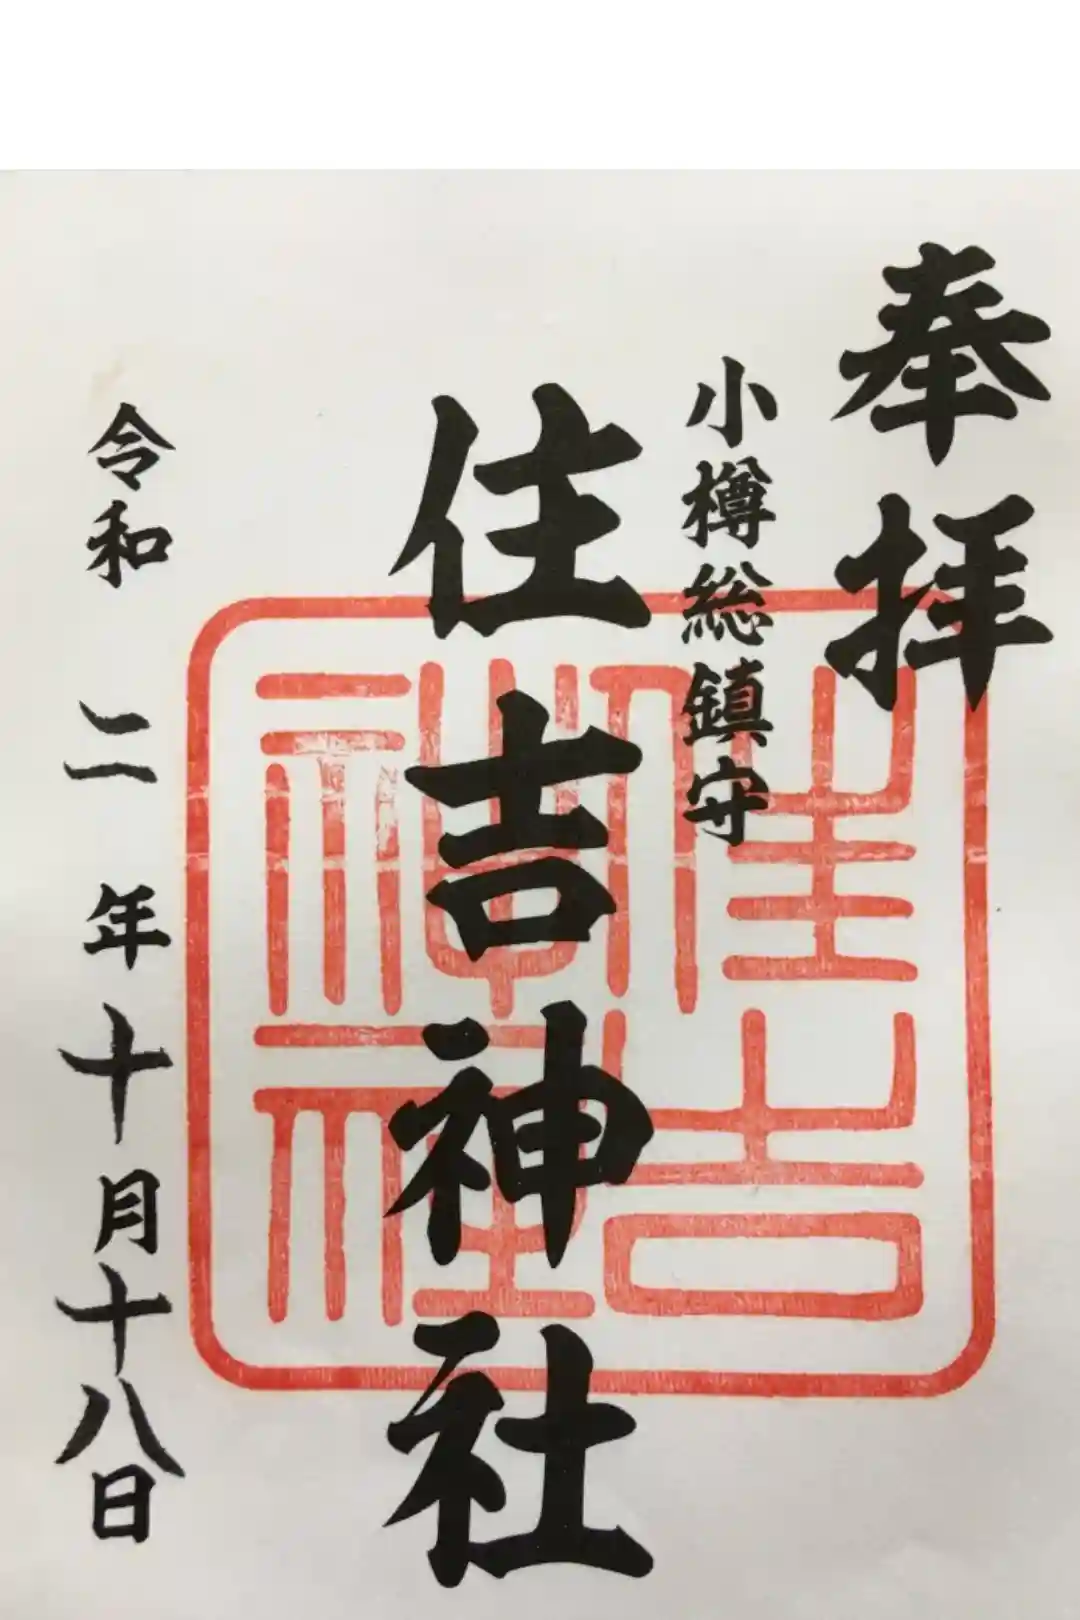 奉拝
小樽総鎮守
住吉神社
令和二年十月十八日
住吉
神社